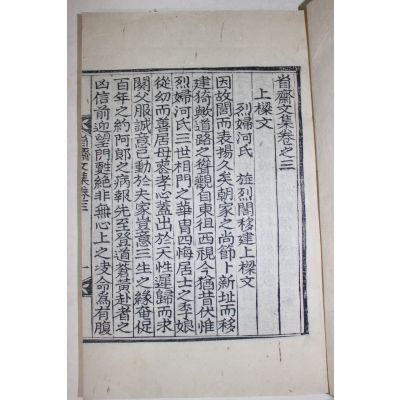 肯齋文集卷之三
上樑文
烈婦河氏 旌烈閭移建上樑文
因故閭而表揚久矣朝家之尚節卜新址而移
建猗歟道路之聳觀自東徂西視今猶昔伏惟
烈婦河氏三世相門之華胄四悔居士之季娘
從幼而善居母喪孝心蓋出於天性遲歸而求
闋父服誠意已動於夫家豈意三生之緣奄促
百年之約阿郎之病報先至登道蒼黃赴者之
凶信前迎望門甦絶非無心上之決命爲有腹